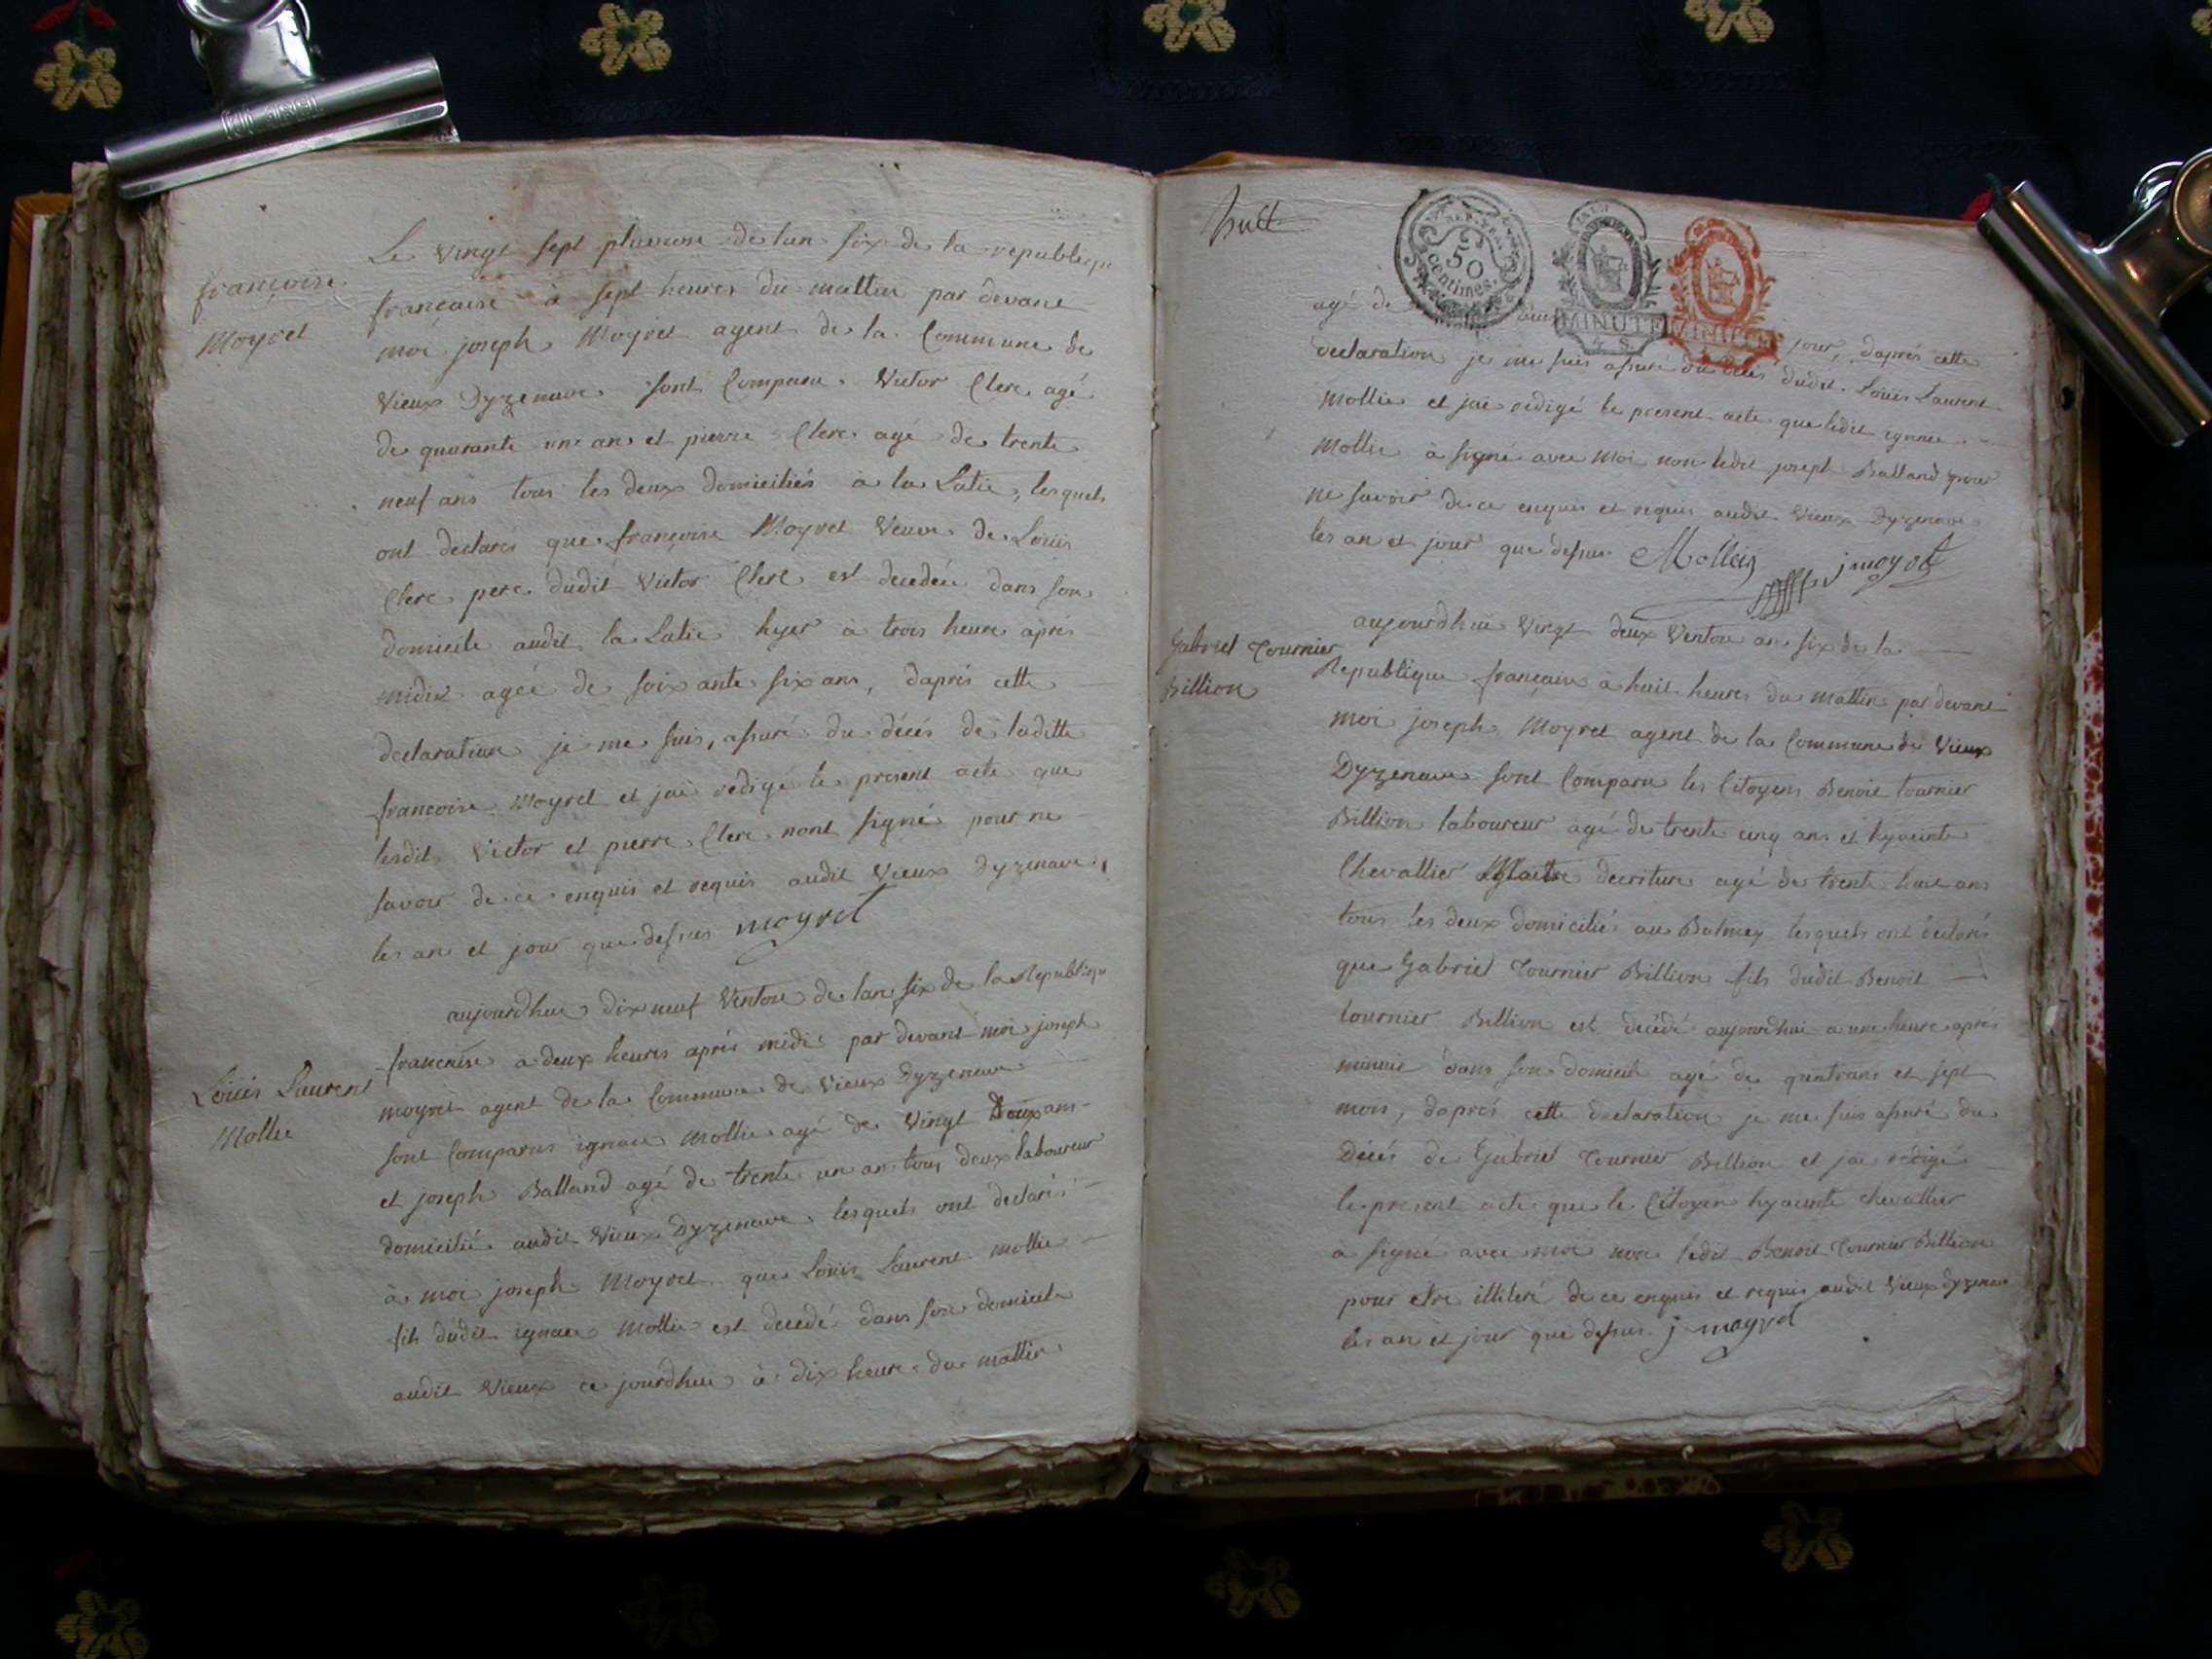 françoise
Moyret
Le vingt sept pluviose de lan six de la republique
francaise à sept heures du mattin par devant
moi joseph Moyret agent de la Commune de
Vieux Dyzenave sont Comparu Victor Clerc agé
de quarante un ans et pierre Clerc agé de trente
neuf ans tous les deux domiciliés à la Latie, lesquels
ont declares que françoise Moyret Veuve de Loüis
Clerc pere dudit Victor Clerc est decedée dans son
domicile audit la Latie hyer à trois heure aprés
midix agée de soixante six ans, daprés cette
declaration je me suis, assuré du décés de laditte
francoise Moyret et jai redigé le present acte que
lesdit Victor et pierre Clerc nont signé pour ne
savoir de ce enquis et requis audit Vieux Dyzenave
les an et jour que dessus moyret
Loüis Laurent
Mollie
aujourdhui dix neuf Ventose de lan six de la Republique
francaise a deux heures aprés midi par devant moi joseph
moyret agent de la Commune de Vieux Dyzenave
sont Comparus ignace Mollie agé de Vingt ans
et joseph Balland agé de trente un an tous deux laboureur
domicilié audit Vieux Dyzenave lesquels ont declarés
à moi joseph Moyret que Loüis Laurent Mollie
fils dudit ignace Mollie est decedé dans son domicile
audit Vieux ce jourdhui à dix heure du mattin
huit
50
centimes
MINUTE
agé de jour, daprés cette
declaration je me suis assuré du decés dudit Loüis Laurent
Mollie et jai redigé le present acte que ledit ignace
Mollie à signé avec moi non ledit joseph Balland pour
ne savoir de ce enquis et requis audit Vieux Dyzenave
les an et jour que dessus Mollie j moyret
Gabriel Tournier
Billion
aujourdhui Vingt deux Ventose an six de la
Republique française à huit heures du mattin par devant
moi joseph Moyret agent de la Commune de Vieux
Dyzenave sont Comparu les Citoyens Benoit tournier
Billion laboureur agé de trente cinq ans et hyacinte
Chevallier Maitre decriture agé de trente huit ans
tous les deux domiciliés au Balmey lesquels ont déclarés
que Gabriel Tournier Billion fils dudit Benoit
tournier Billion est décédé aujourdhui a une heure aprés
minuit dans son domicile agé de quatrans et sept
mois, daprés cette declaration je me suis assuré du
Décés de Gabriel Tournier Billion et jai redigé
le present acte que le Citoyen hyacinte chevallier
à signé avec moi non ledit Benoit Tournier Billion
pour etre illiteré de ce enquis et requis audit Vieux dyzenave
les an et jour que dessus j moyret